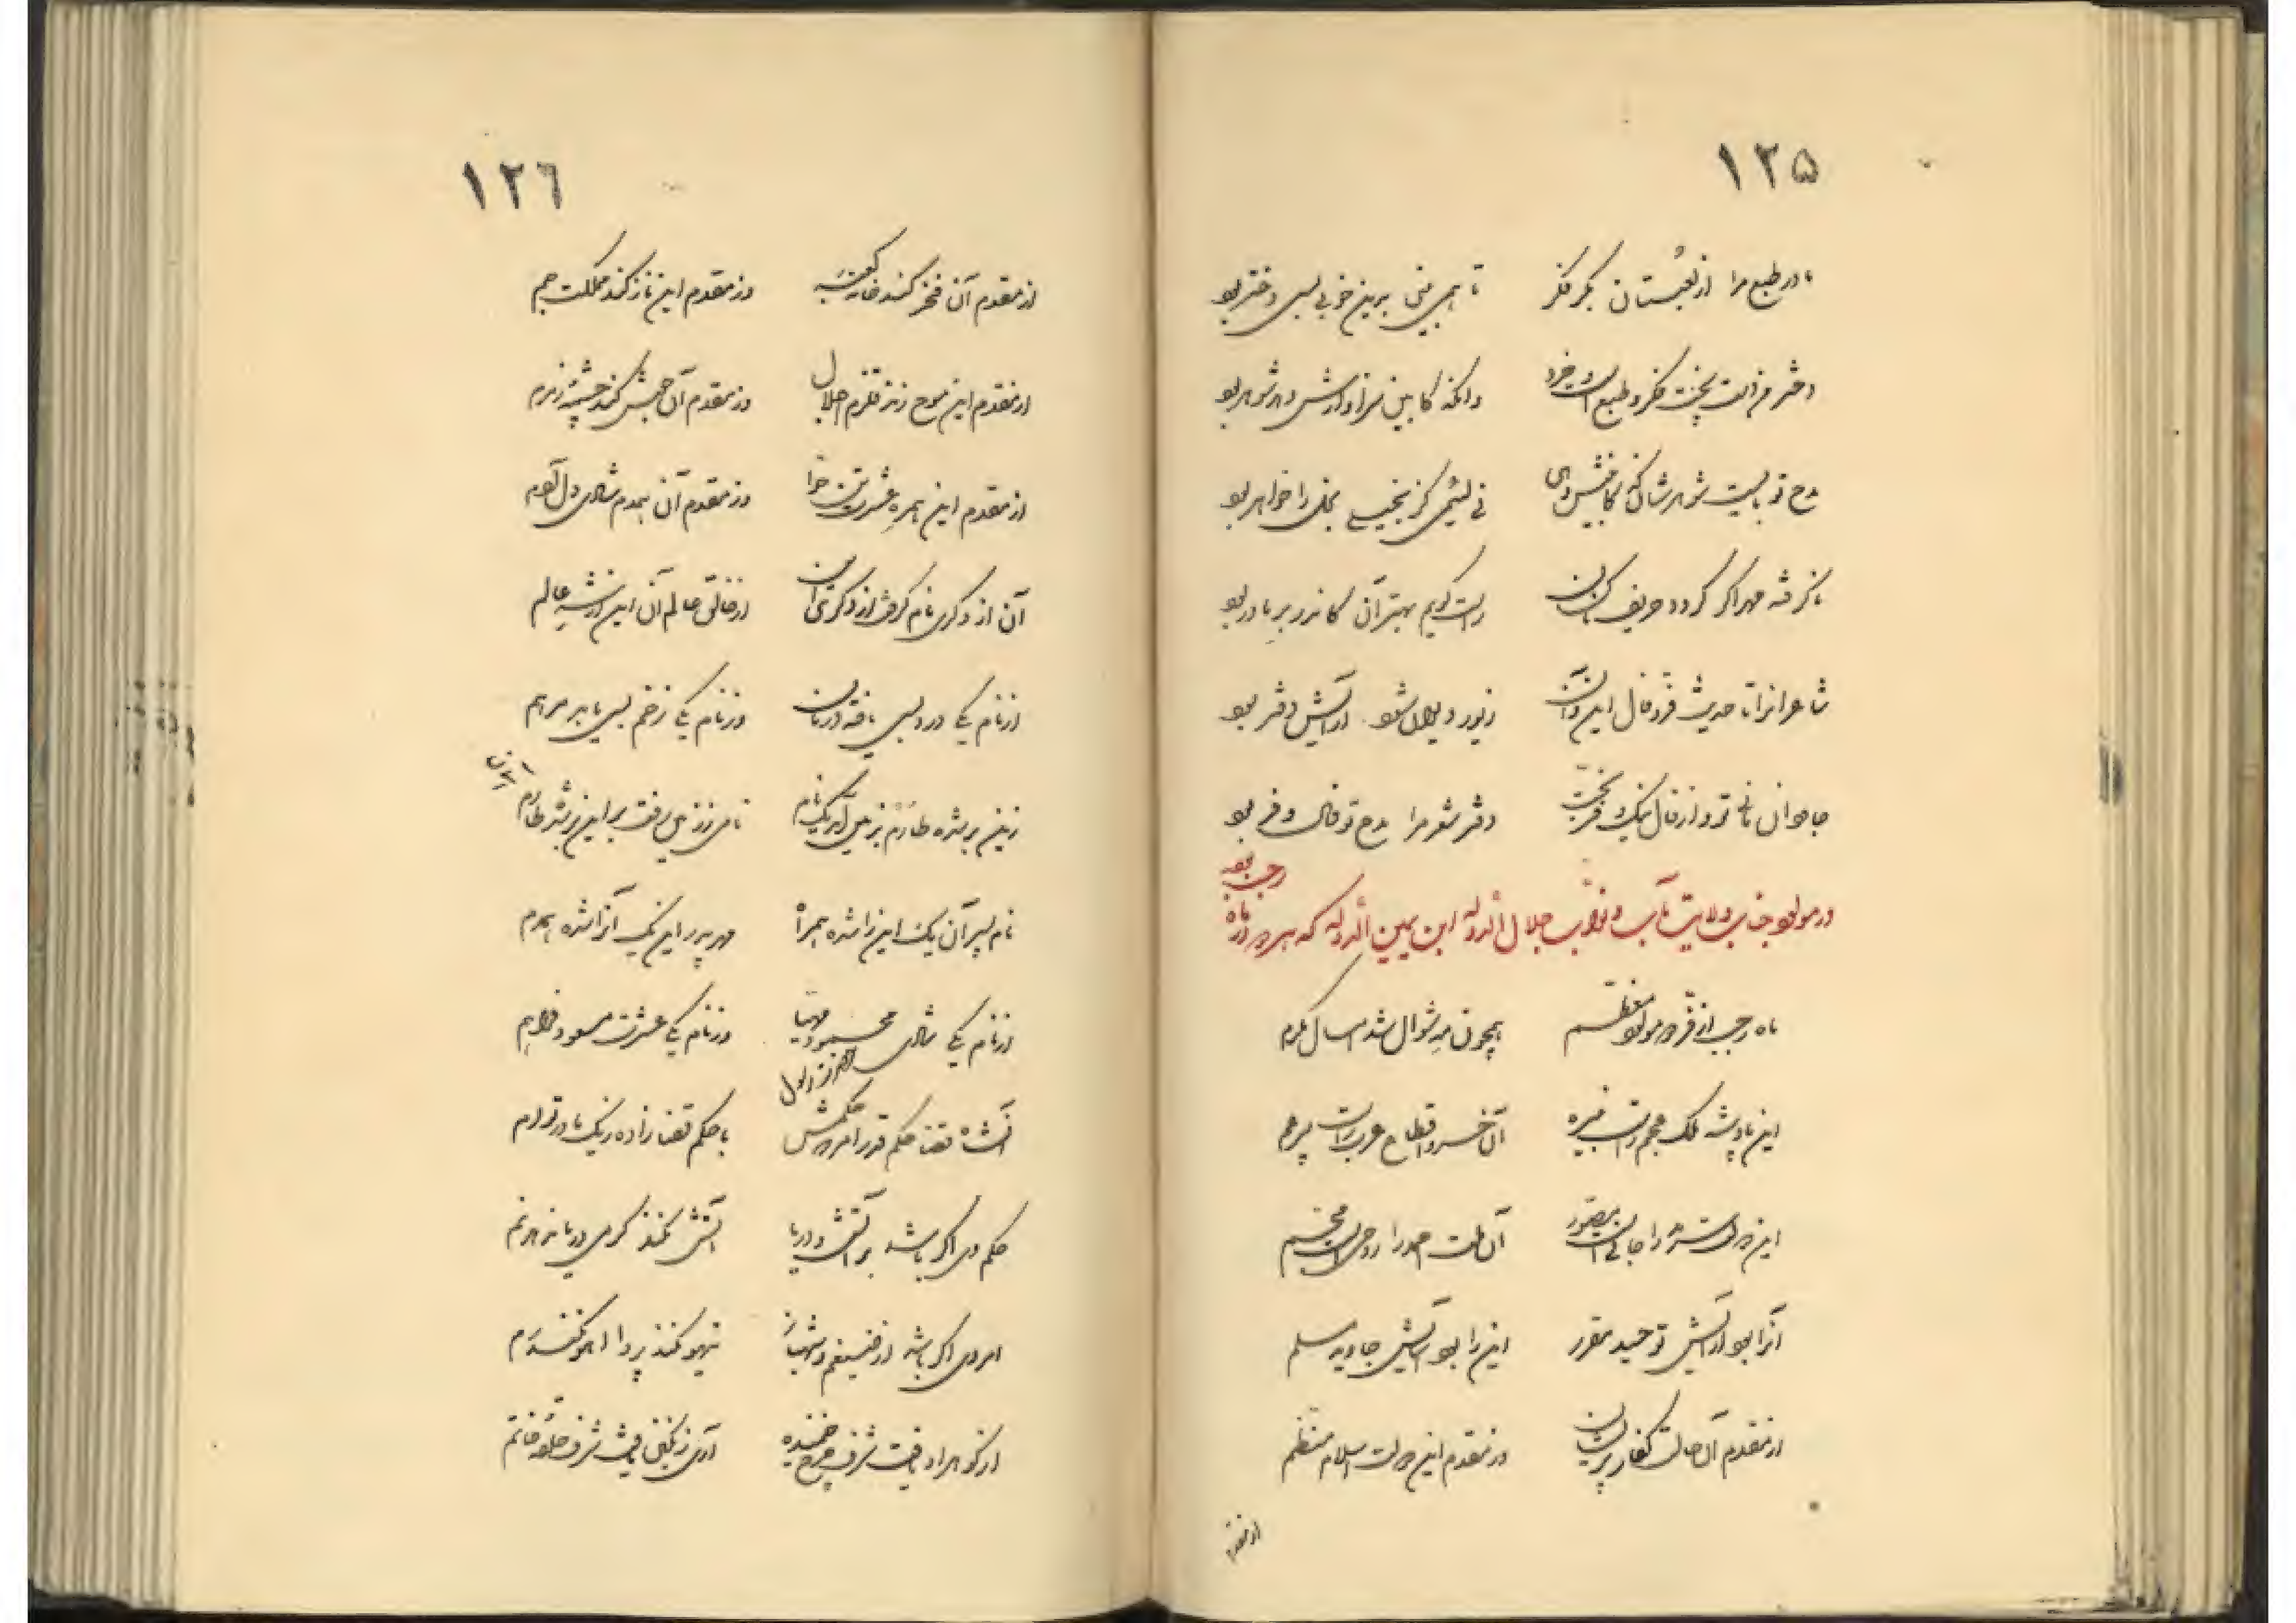 ١٢٥
مادر طبع مرا از نعیستان بکر فکر تا همی بینی برین خوبی بسی دختر بود
دختر من است بخت فکر و طبع است و خرد وانکه کابین سزاوارش دهد شوهر بود
مدح تو بایست شوهرشان که کابینش دهی نی لئیمی کز بخیلی بخل را خواهر بود
ناگرفته مهر اگر گردد حریف کسان راست گویم بهتر آن کاندر بر مادر بود
شاعرانرا تا حدیث فر و فال این و آن زیور دیوان شود آرایش دفتر بود
جاودان مانی تو و از فال نیک و فر بخت دفتر شعر مرا مدح تو فال و فر بود
در مولود جناب ولایت مآب و نواب جلال الدوله ابن یمین الدوله که هر دو در ماه رجب بود
ماه رجب از فر دو مولود معظم همچون مه شوال شد امسال مکرم
این پادشه ملک عجم راست نبیره آن خسرو اقطاع عرب راست پسر عم
این دولت شه را جانی است مصور آن ملت احمد را روحی است مجسم
آنرا بود آرایش توحید مقرر این را بود آسایش جاوید مسلم
از مقدم آن حالت کفار پریشان وز مقدم این دولت اسلام منظم
از مقدم
١٢٦
از مقدم آن فخر کند خانه کعبه وز مقدم این ناز کند مملکت جم
از مقدم این موج زند قلزم اجلال وز مقدم آن جوشش کند چشمه زمزم
از مقدم این همره عشرت تن حوا وز مقدم آن همدم شادی دل آدم
آن از دگری نام گرفت از دگری این از خالق عالم آن این از شه عالم
از نام یکی درد بسی یافته درمان وز نام یکی زخم بسی یابد مرهم
زین بر شده طارم بزمین آمد یک نام نامی ز زمین رفت بر این بر شده طارم
نام پسر آن یک این را شده همراه مهر پدر این یک آنرا شده همدم
از نام یکی شادی محمود مهیا وز نام یکی عشرت مسعود فراهم
آن شاه قضا حکم قدر امر که حکمش با حکم قضا زاده ز یک مادر توام
حکم وی اگر باشد بر آتش و دریا آتش نکند گرمی دریا ندهد نم
امر وی اگر باشد از ضیغم و شهباز تیهو نکند پروا آهو نکند رم
از گوهر او یافت شرف چرخ خمیده آری ز نگین یافت شرف حلقه خاتم